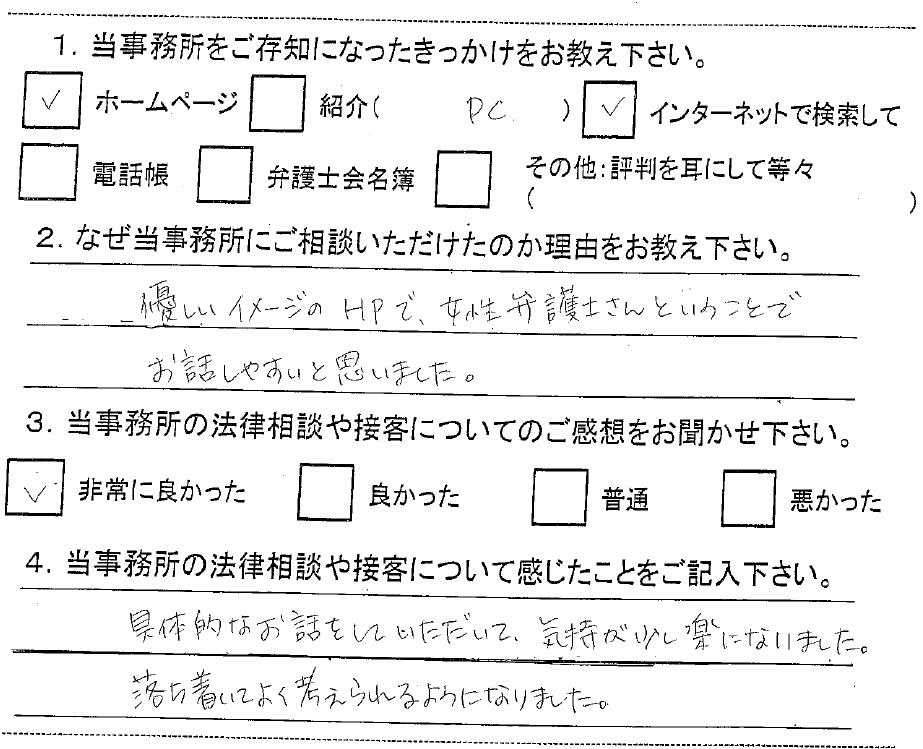 1. 当事務所をご存知になったきっかけをお教え下さい。
✓ ホームページ 紹介( PC ) ✓ インターネットで検索して
電話帳 弁護士会名簿 その他:評判を耳にして等々
( )
2. なぜ当事務所にご相談いただけたのか理由をお教え下さい。
優しいイメージのHPで、女性弁護士さんということで
お話しやすいと思いました。
3. 当事務所の法律相談や接客についてのご感想をお聞かせ下さい。
✓ 非常に良かった 良かった 普通 悪かった
4. 当事務所の法律相談や接客について感じたことをご記入下さい。
具体的なお話をしていただいて、気持が少し楽になりました。
落ち着いてよく考えられるようになりました。